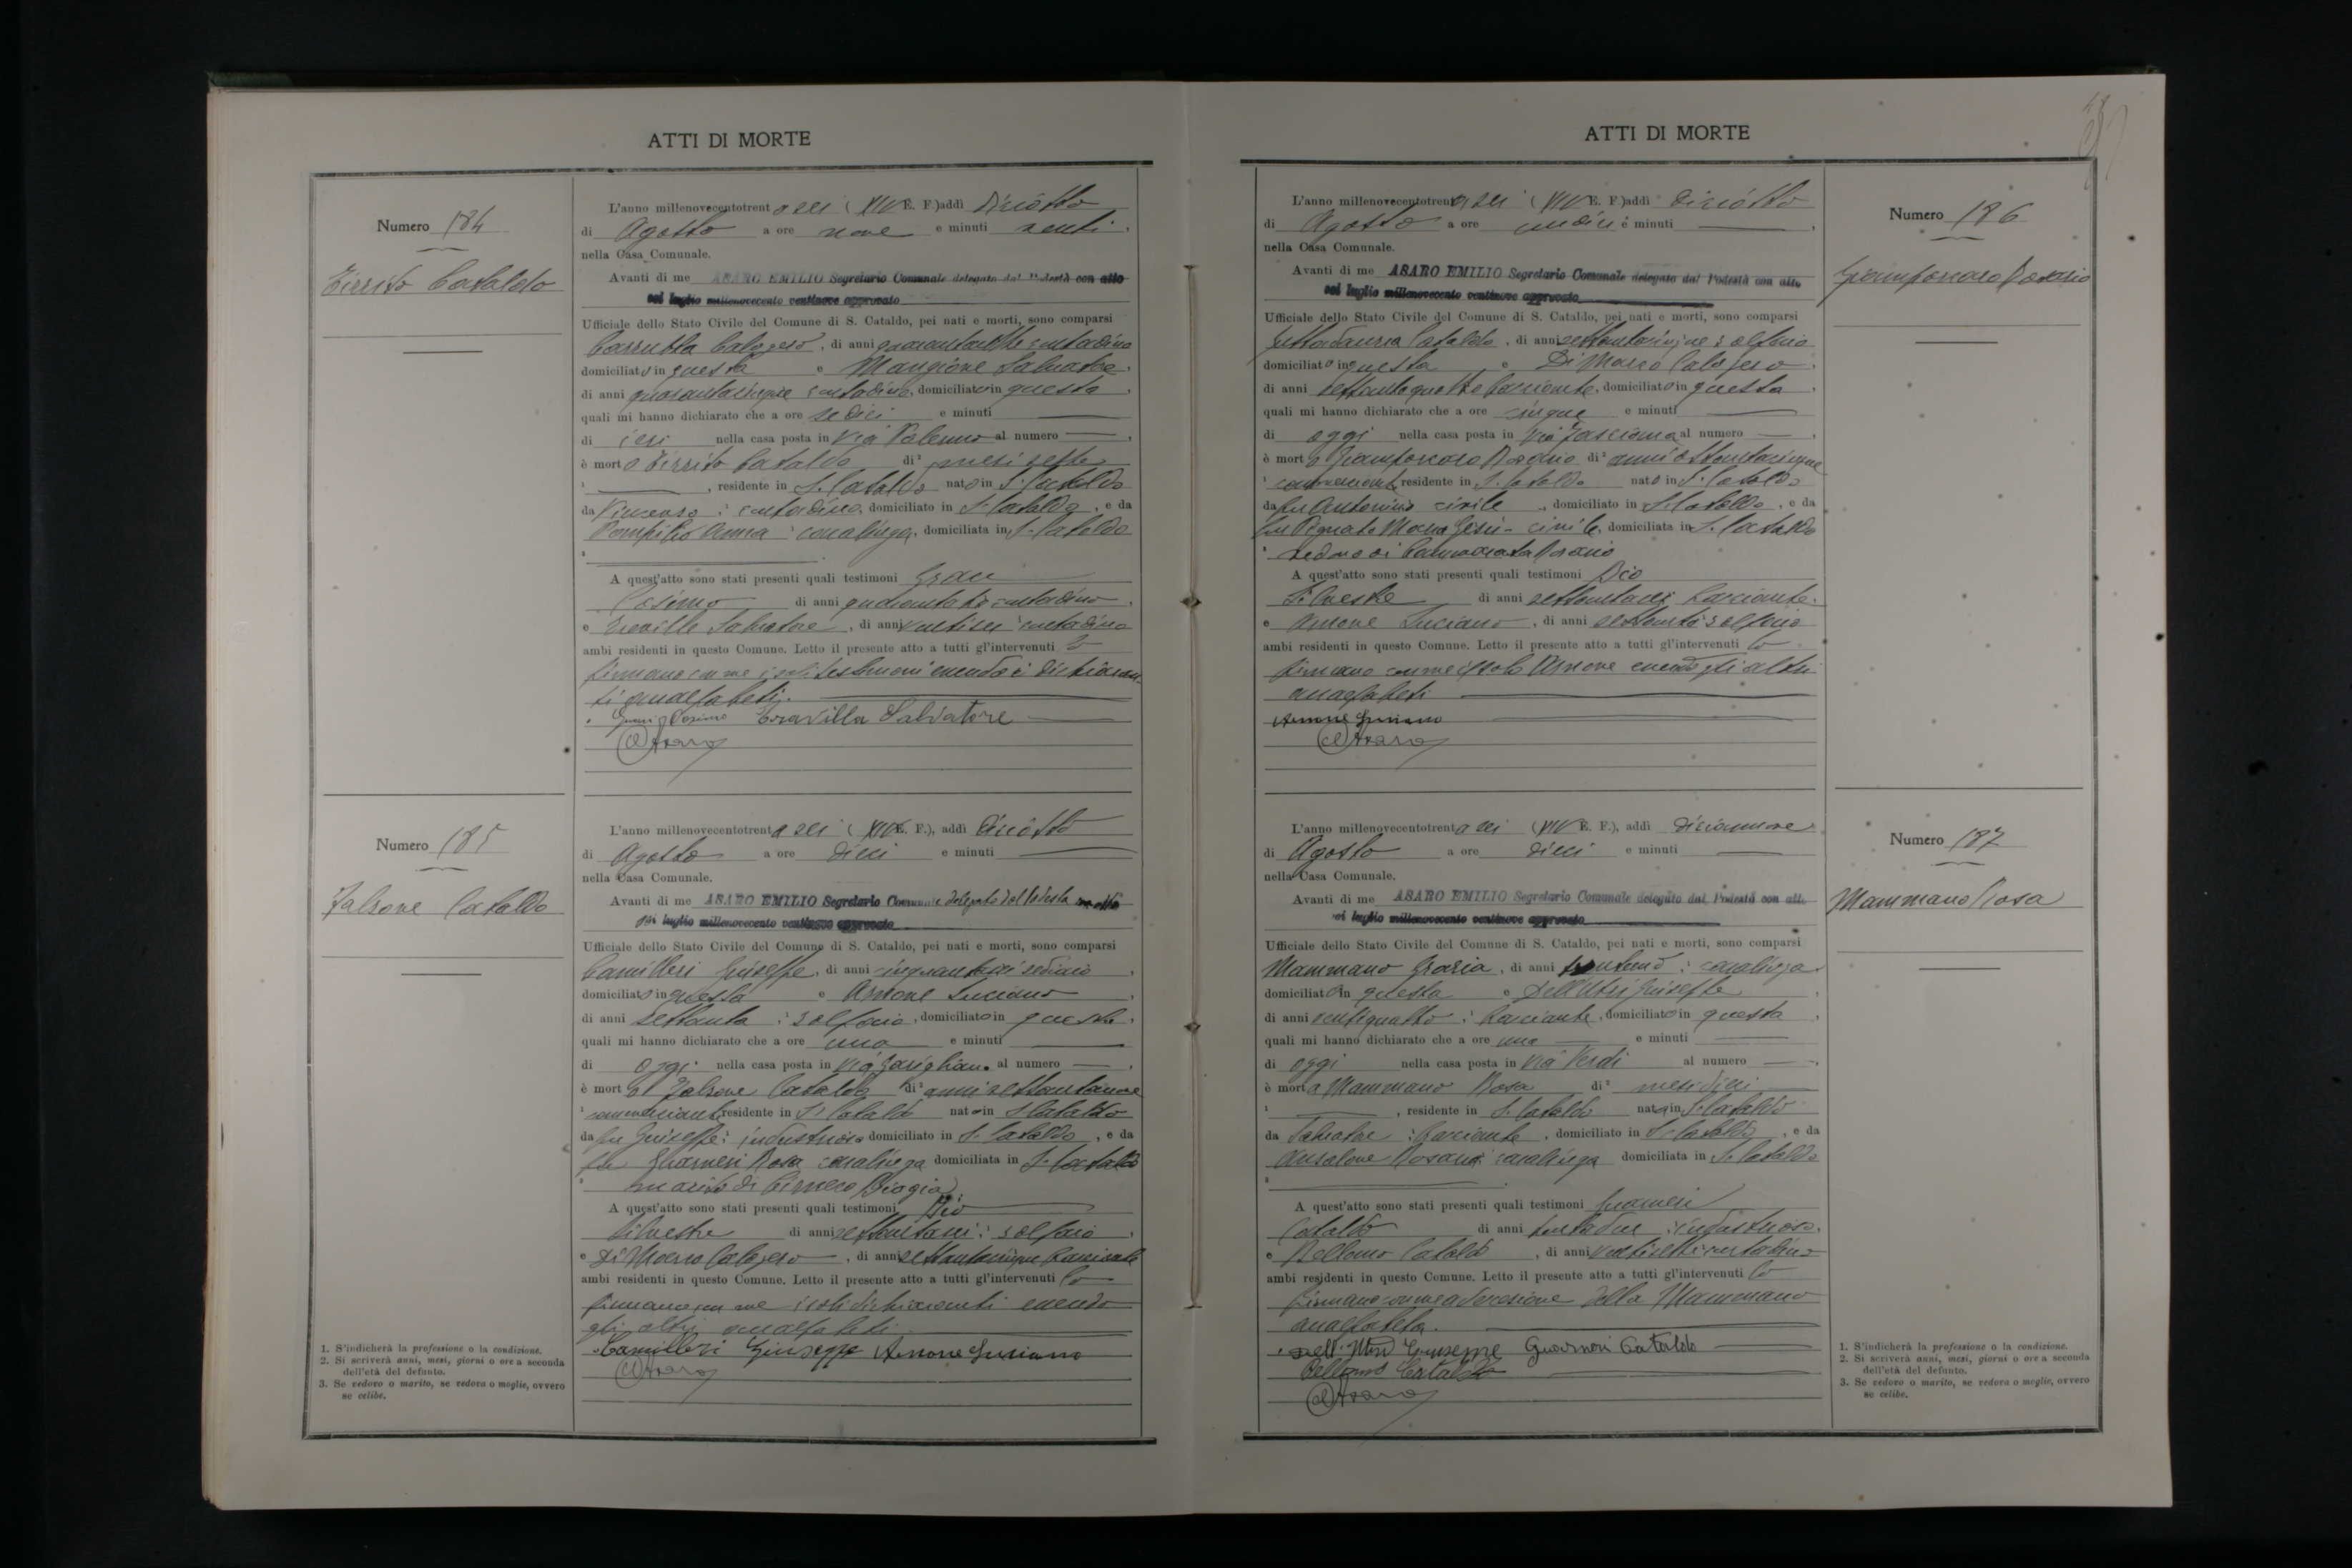 ATTI DI MORTE
Numero 184
Tirrito Cataldo
L'anno millenovecentotrentasei (XIV E. F.) addì Diciotto
di Agosto a ore nove e minuti venti.
nella Casa Comunale.
Avanti di me ASARO EMILIO Segretario Comunale delegato dal Podestà con atto
sei luglio millenovecento ventinove approvato
Ufficiale dello Stato Civile del Comune di S. Cataldo, pei nati e morti, sono comparsi
Calogero, di anni contadino
domiciliato in questa e Mangione Salvatore
di anni quarantacinque contadino, domiciliato in questa
quali mi hanno dichiarato che a ore sedici e minuti
di ieri nella casa posta in Via Palermo al numero
è morto Tirrito Cataldo di² mesi sette
¹ , residente in S. Cataldo nato in S. Cataldo
da Vincenzo: contadino, domiciliato in S. Cataldo, e da
Pompilio Anna casalinga, domiciliata in S. Cataldo
3
A quest'atto sono stati presenti quali testimoni
Cosimo di anni contadino
e Salvatore, di anni ventisei contadino
ambi residenti in questo Comune. Letto il presente atto a tutti gl'intervenuti lo
firmano con me i soli testimoni essendo i dichiaran-
ti analfabeti.
Cosimo Travilla Salvatore
Asaro
Numero 185
Falsone Cataldo
L'anno millenovecentotrentasei (XIV E. F.), addì Diciotto
di Agosto a ore dieci e minuti
nella Casa Comunale.
Avanti di me ASARO EMILIO Segretario Comunale delegato dal Podestà con atto
sei luglio millenovecento ventinove approvato
Ufficiale dello Stato Civile del Comune di S. Cataldo, pei nati e morti, sono comparsi
Camilleri Giuseppe, di anni
domiciliato in questa e Arnone Luciano
di anni settanta: solfaio, domiciliato in questa.
quali mi hanno dichiarato che a ore una e minuti
di oggi nella casa posta in Via Garigliano al numero
è morto Falsone Cataldo di² anni settantanove
¹ commerciante residente in S. Cataldo nato in S. Cataldo
da fu Giuseppe: industrioso domiciliato in S. Cataldo, e da
fu Guarneri Rosa casalinga domiciliata in S. Cataldo
³ marito di Biagia
A quest'atto sono stati presenti quali testimoni Riò
Silvestre di anni settantasei: solfaio
e Di Marco Calogero, di anni settantacinque bracciante
ambi residenti in questo Comune. Letto il presente atto a tutti gl'intervenuti lo
firmano con me i soli dichiaranti essendo
gli altri analfabeti.
Camilleri Giuseppe Arnone Luciano
Asaro
1. S'indicherà la professione o la condizione.
2. Si scriverà anni, mesi, giorni o ore a seconda
dell'età del defunto.
3. Se vedovo o marito, se vedova o moglie, ovvero
se celibe.
ATTI DI MORTE
Numero 186
Giamporcaro Rosario
L'anno millenovecentotrentasei (XIV E. F.) addì Diciotto
di Agosto a ore undici e minuti
nella Casa Comunale.
Avanti di me ASARO EMILIO Segretario Comunale delegato dal Podestà con atto
sei luglio millenovecento ventinove approvato
Ufficiale dello Stato Civile del Comune di S. Cataldo, pei nati e morti, sono comparsi
Cataldo, di anni settantacinque: solfaio
domiciliato in questa e Di Marco Calogero
di anni bracciante, domiciliato in questa
quali mi hanno dichiarato che a ore cinque e minuti
di oggi nella casa posta in Via al numero
è morto Giamporcaro Rosario di² anni ottantacinque
¹ commerciante residente in S. Cataldo nato in S. Cataldo
da fu Antonino civile, domiciliato in S. Cataldo, e da
fu Pignato Maria Gesù civile, domiciliata in S. Cataldo
³ vedovo di
A quest'atto sono stati presenti quali testimoni Riò
Silvestre di anni settantasei bracciante.
e Arnone Luciano, di anni settanta solfaio
ambi residenti in questo Comune. Letto il presente atto a tutti gl'intervenuti lo
firmano con me il solo Arnone essendo gli altri
analfabeti
Arnone Luciano
Asaro
Numero 187
Mammano Rosa
L'anno millenovecentotrentasei (XIV E. F.), addì diciannove
di Agosto a ore dieci e minuti
nella Casa Comunale.
Avanti di me ASARO EMILIO Segretario Comunale delegato dal Podestà con atto
sei luglio millenovecento ventinove approvato
Ufficiale dello Stato Civile del Comune di S. Cataldo, pei nati e morti, sono comparsi
Mammano Grazia, di anni trentuno: casalinga
domiciliata in questa e Dell'Utri Giuseppe
di anni ventiquattro: bracciante, domiciliato in questa
quali mi hanno dichiarato che a ore una e minuti
di oggi nella casa posta in Via Verdi al numero
è morta Mammano Rosa di² mesi dieci
¹ , residente in S. Cataldo nata in S. Cataldo
da Salvatore: bracciante, domiciliato in S. Cataldo, e da
Ansalone Rosaria casalinga domiciliata in S. Cataldo
3
A quest'atto sono stati presenti quali testimoni Guarneri
Cataldo di anni trentadue: industrioso.
e Bellomo Cataldo, di anni ventisette contadino
ambi residenti in questo Comune. Letto il presente atto a tutti gl'intervenuti lo
firmano con me ad eccezione della Mammano
analfabeta.
Dell'Utri Giuseppe Guarneri Cataldo
Bellomo Cataldo
Asaro
1. S'indicherà la professione o la condizione.
2. Si scriverà anni, mesi, giorni o ore a seconda
dell'età del defunto.
3. Se vedovo o marito, se vedova o moglie, ovvero
se celibe.